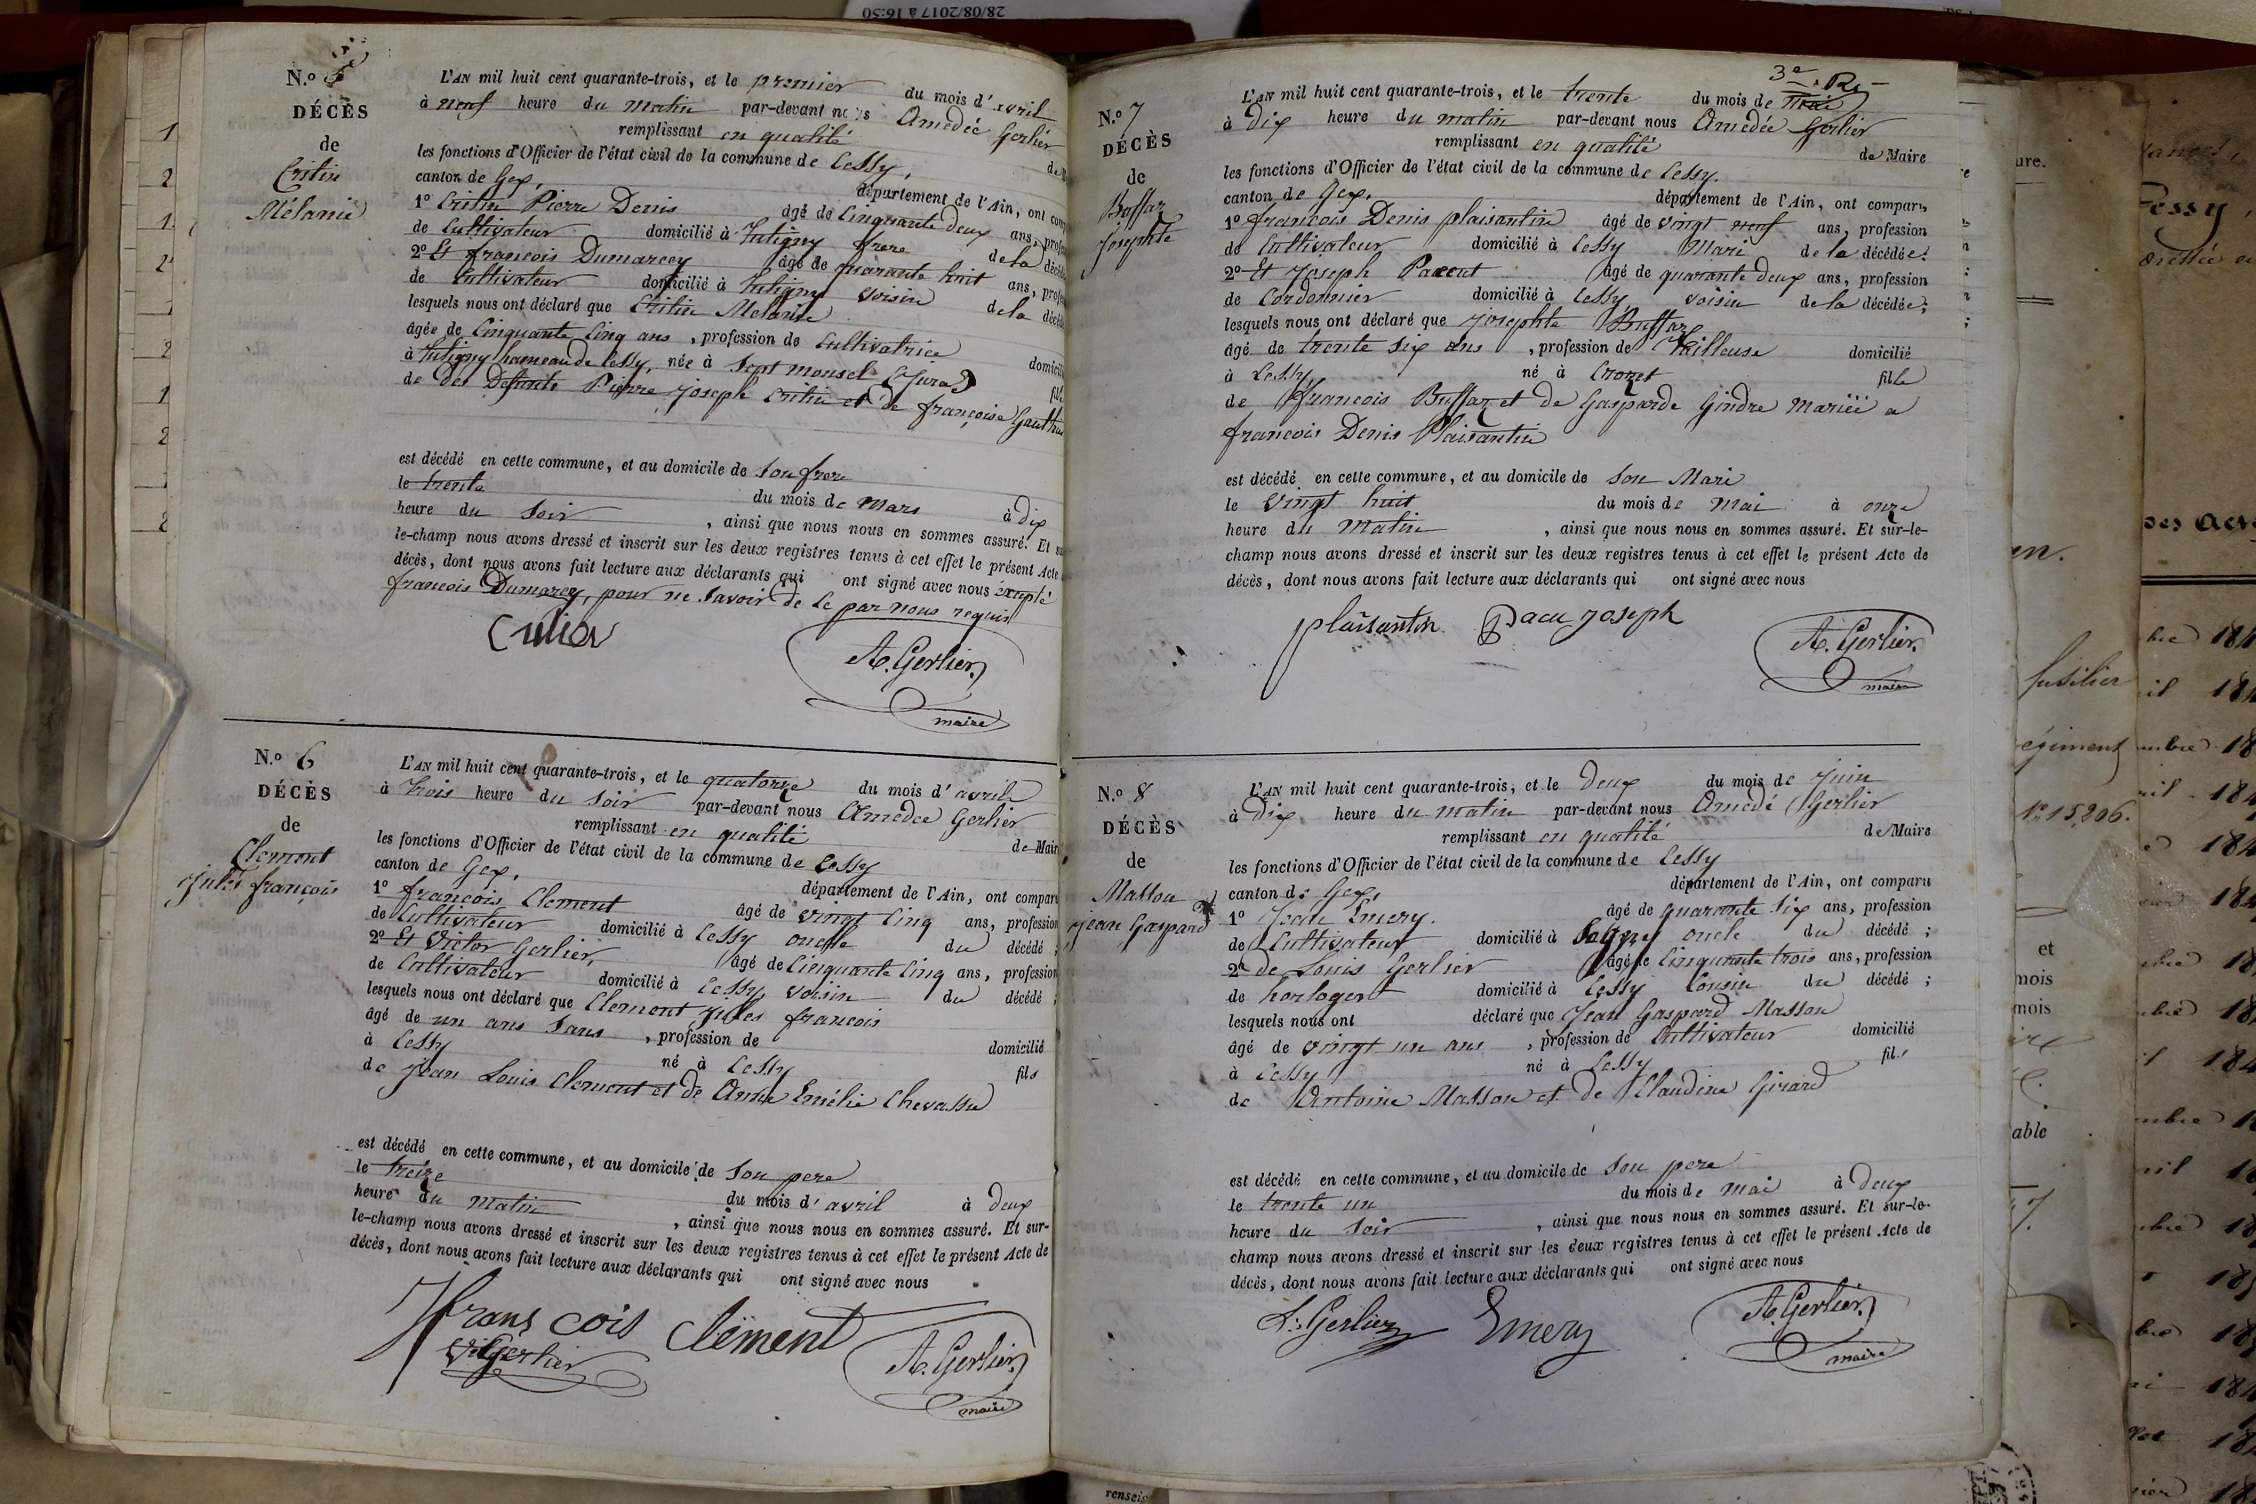 28/08/2017 à 16:50
N.o 5
DÉCÈS
de
Critin
Mélanie
L'AN mil huit cent quarante-trois, et le premier du mois d'avril
à neuf heure du matin par-devant nous Amedée Gerlier
remplissant en qualité
les fonctions d'Officier de l'état civil de la commune de Cessy,
canton de Gex, département de l'Ain, ont
1o Critin Pierre Denis âgé de Cinquante deux ans,
de Cultivateur domicilié à Tutigny frere de la
2o Et francois Dumarcey âgé de quarante huit ans,
de Cultivateur domicilié à Tutigny voisin de la
lesquels nous ont déclaré que Critin Mélanie
âgée de Cinquante Cinq ans, profession de Cultivatrice
à Tutigny hameau de Cessy, née à Sept moncel (Jura)
de des Defunts Pierre Joseph Critin et de françoise
est décédé en cette commune, et au domicile de Son frere
le trente du mois de Mars à dix
heure du Soir, ainsi que nous nous en sommes assuré. Et
le-champ nous avons dressé et inscrit sur les deux registres tenus à cet effet le présent Acte
décès, dont nous avons fait lecture aux déclarants qui ont signé avec nous exepté
francois Dumarcey, pour ne Savoir de Ce par nous requis
A. Gerlier
maire
N.o 6
DÉCÈS
de
Clement
Jules françois
L'AN mil huit cent quarante-trois, et le quatorze du mois d'avril
à Trois heure du Soir par-devant nous Amedée Gerlier
remplissant en qualité de Maire
les fonctions d'Officier de l'état civil de la commune de Cessy
canton de Gex, département de l'Ain, ont comparu
1o francois Clement âgé de vingt Cinq ans, profession
de Cultivateur domicilié à Cessy oncle du décédé ;
2o Et Victor Gerlier, âgé de Cinquante Cinq ans, profession
de Cultivateur domicilié à Cessy voisin du décédé ;
lesquels nous ont déclaré que Clement Jules francois
âgé de un ans Sans, profession de domicilié
à Cessy né à Cessy fils
de Jean Louis Clement et de Anne Emélie Chevassu
est décédé en cette commune, et au domicile de Son pere
le treize du mois d'avril à deux
heure du matin, ainsi que nous nous en sommes assuré. Et sur-
le-champ nous avons dressé et inscrit sur les deux registres tenus à cet effet le présent Acte de
décès, dont nous avons fait lecture aux déclarants qui ont signé avec nous
françois Clément
V. Gerlier
A. Gerlier
maire
N.o 7
DÉCÈS
de
Buffaz
Josephte
L'AN mil huit cent quarante-trois, et le trente du mois de mai
à Dix heure du matin par-devant nous Amedée Gerlier
remplissant en qualité de Maire
les fonctions d'Officier de l'état civil de la commune de Cessy.
canton de Gex, département de l'Ain, ont comparu
1o francois Denis plaisantin âgé de vingt neuf ans, profession
de Cultivateur domicilié à Cessy Mari de la décédée.
2o Et Joseph Pacout âgé de quarante deux ans, profession
de Cordonnier domicilié à Cessy voisin de la décédée ;
lesquels nous ont déclaré que Josephte Buffaz
âgé de trente Six ans, profession de Tailleuse domicilié
à Cessy, né à Crozet fille
de francois Buffaz et de Gasparde Gindre Mariéé a
francois Denis Plaisantin
est décédé en cette commune, et au domicile de Son Mari
le vingt huit du mois de mai à onze
heure du Matin, ainsi que nous nous en sommes assuré. Et sur-le-
champ nous avons dressé et inscrit sur les deux registres tenus à cet effet le présent Acte de
décès, dont nous avons fait lecture aux déclarants qui ont signé avec nous
plaisantin Pacu Joseph
A. Gerlier
maire
N.o 8
DÉCÈS
de
Masson
Jean Gaspard
L'AN mil huit cent quarante-trois, et le Deux du mois de Juin
à Dix heure du matin par-devant nous Amedé Gerlier
remplissant en qualité de Maire
les fonctions d'Officier de l'état civil de la commune de Cessy
canton de Gex, département de l'Ain, ont comparu
1o Jean Emery. âgé de quarante Six ans, profession
de Cultivateur domicilié à oncle du décédé ;
2o de Louis Gerlier âgé de Cinquante trois ans, profession
de horloger domicilié à Cessy Cousin du décédé ;
lesquels nous ont déclaré que Jean Gaspard Masson
âgé de vingt un ans, profession de Cultivateur domicilié
à Cessy né à Cessy fils
de Antoine Masson et de Claudine Girard
est décédé en cette commune, et au domicile de Son pere
le trente un du mois de mai à deux
heure du Soir, ainsi que nous nous en sommes assuré. Et sur-le-
champ nous avons dressé et inscrit sur les deux registres tenus à cet effet le présent Acte de
décès, dont nous avons fait lecture aux déclarants qui ont signé avec nous
L. Gerlier Emery
A. Gerlier
maire
fusilier
No 15,206.
et
mois
mois
able